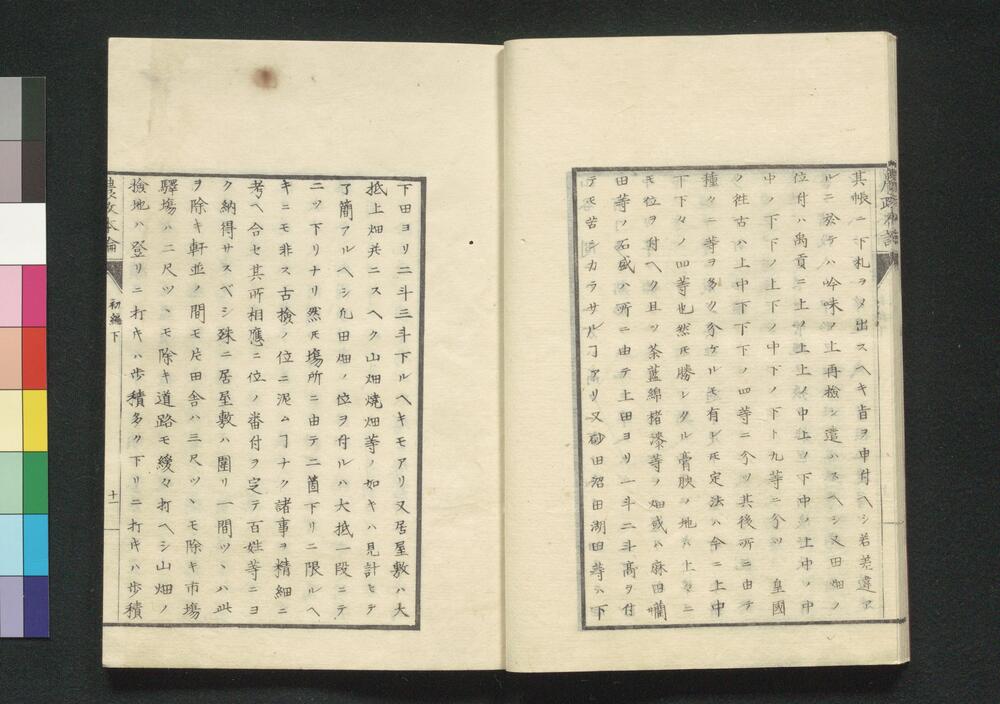 其帳ニ下札ヲメ出スヘキ旨ヲ申付ヘシ若差違ア
ルニ於テハ吟味ノ上再檢シ遣ハスヘシ又田畑ノ
位付ハ禹貢ニ上ノ上上ノ中上ノ下中ノ上中ノ中
中ノ下下ノ上下ノ中下ノ下ト九等ニ分ツ 皇國
ノ往古ハ上中下下下ノ四等ニ分ツ其後所ニ由テ
種々ニ等ヲ多ク分ケルモ有ドモ定法ハ今ニ上中
下下々ノ四等也然𪜈勝レタル膏腴ノ地ハ上々ニ
𪜈位ヲ付ヘク且ツ茶藍綿楮漆等ノ畑或ハ麻田藺
田等ノ石盛ハ所ニ由テ上田ヨリ一斗二斗高ヲ付
テモ苦シカラサルヿアリ又砂田沼田湖田等ハ下
下田ヨリ二斗三斗下ルヘキモアリ又居屋敷ハ大
抵上畑共ニスヘク山畑燒畑等ノ如キハ見計ヒテ
了簡アルヘシ凢田畑ノ位ヲ付ルハ大抵一段ニテ
二ツ下リナリ然𪜈塲所ニ由テ二箇下リニ限ルヘ
キニモ非ス古檢ノ位ニ泥ムヿナク諸事ヲ精細ニ
考ヘ合セ其所相應ニ位ノ番付ヲ定テ百姓等ニヨ
ク納得サスベシ殊ニ居屋敷ハ圍リ一間ツヽハ此
ヲ除キ軒並ノ間モ片田舎ハ三尺ツヽモ除キ市塲
驛塲ハ二尺ツヽモ除キ道路モ緩々打ヘシ山畑ノ
檢地ハ登リニ打キハ歩積多ク下リニ打キハ歩積
農政本論
初編下
十一